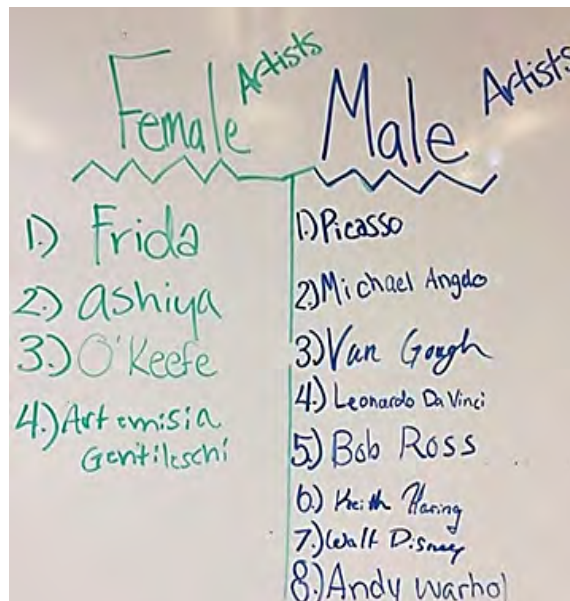 Female Artists
1.) Frida
2.) ashiya
3.) O'Keefe
4.) Artemisia
Gentileschi
Male Artists
1.) Picasso
2.) Michael Angelo
3.) Van Gough
4.) Leonardo Da Vinci
5.) Bob Ross
6.) Keith Haring
7.) Walt Disney
8.) Andy Warhol